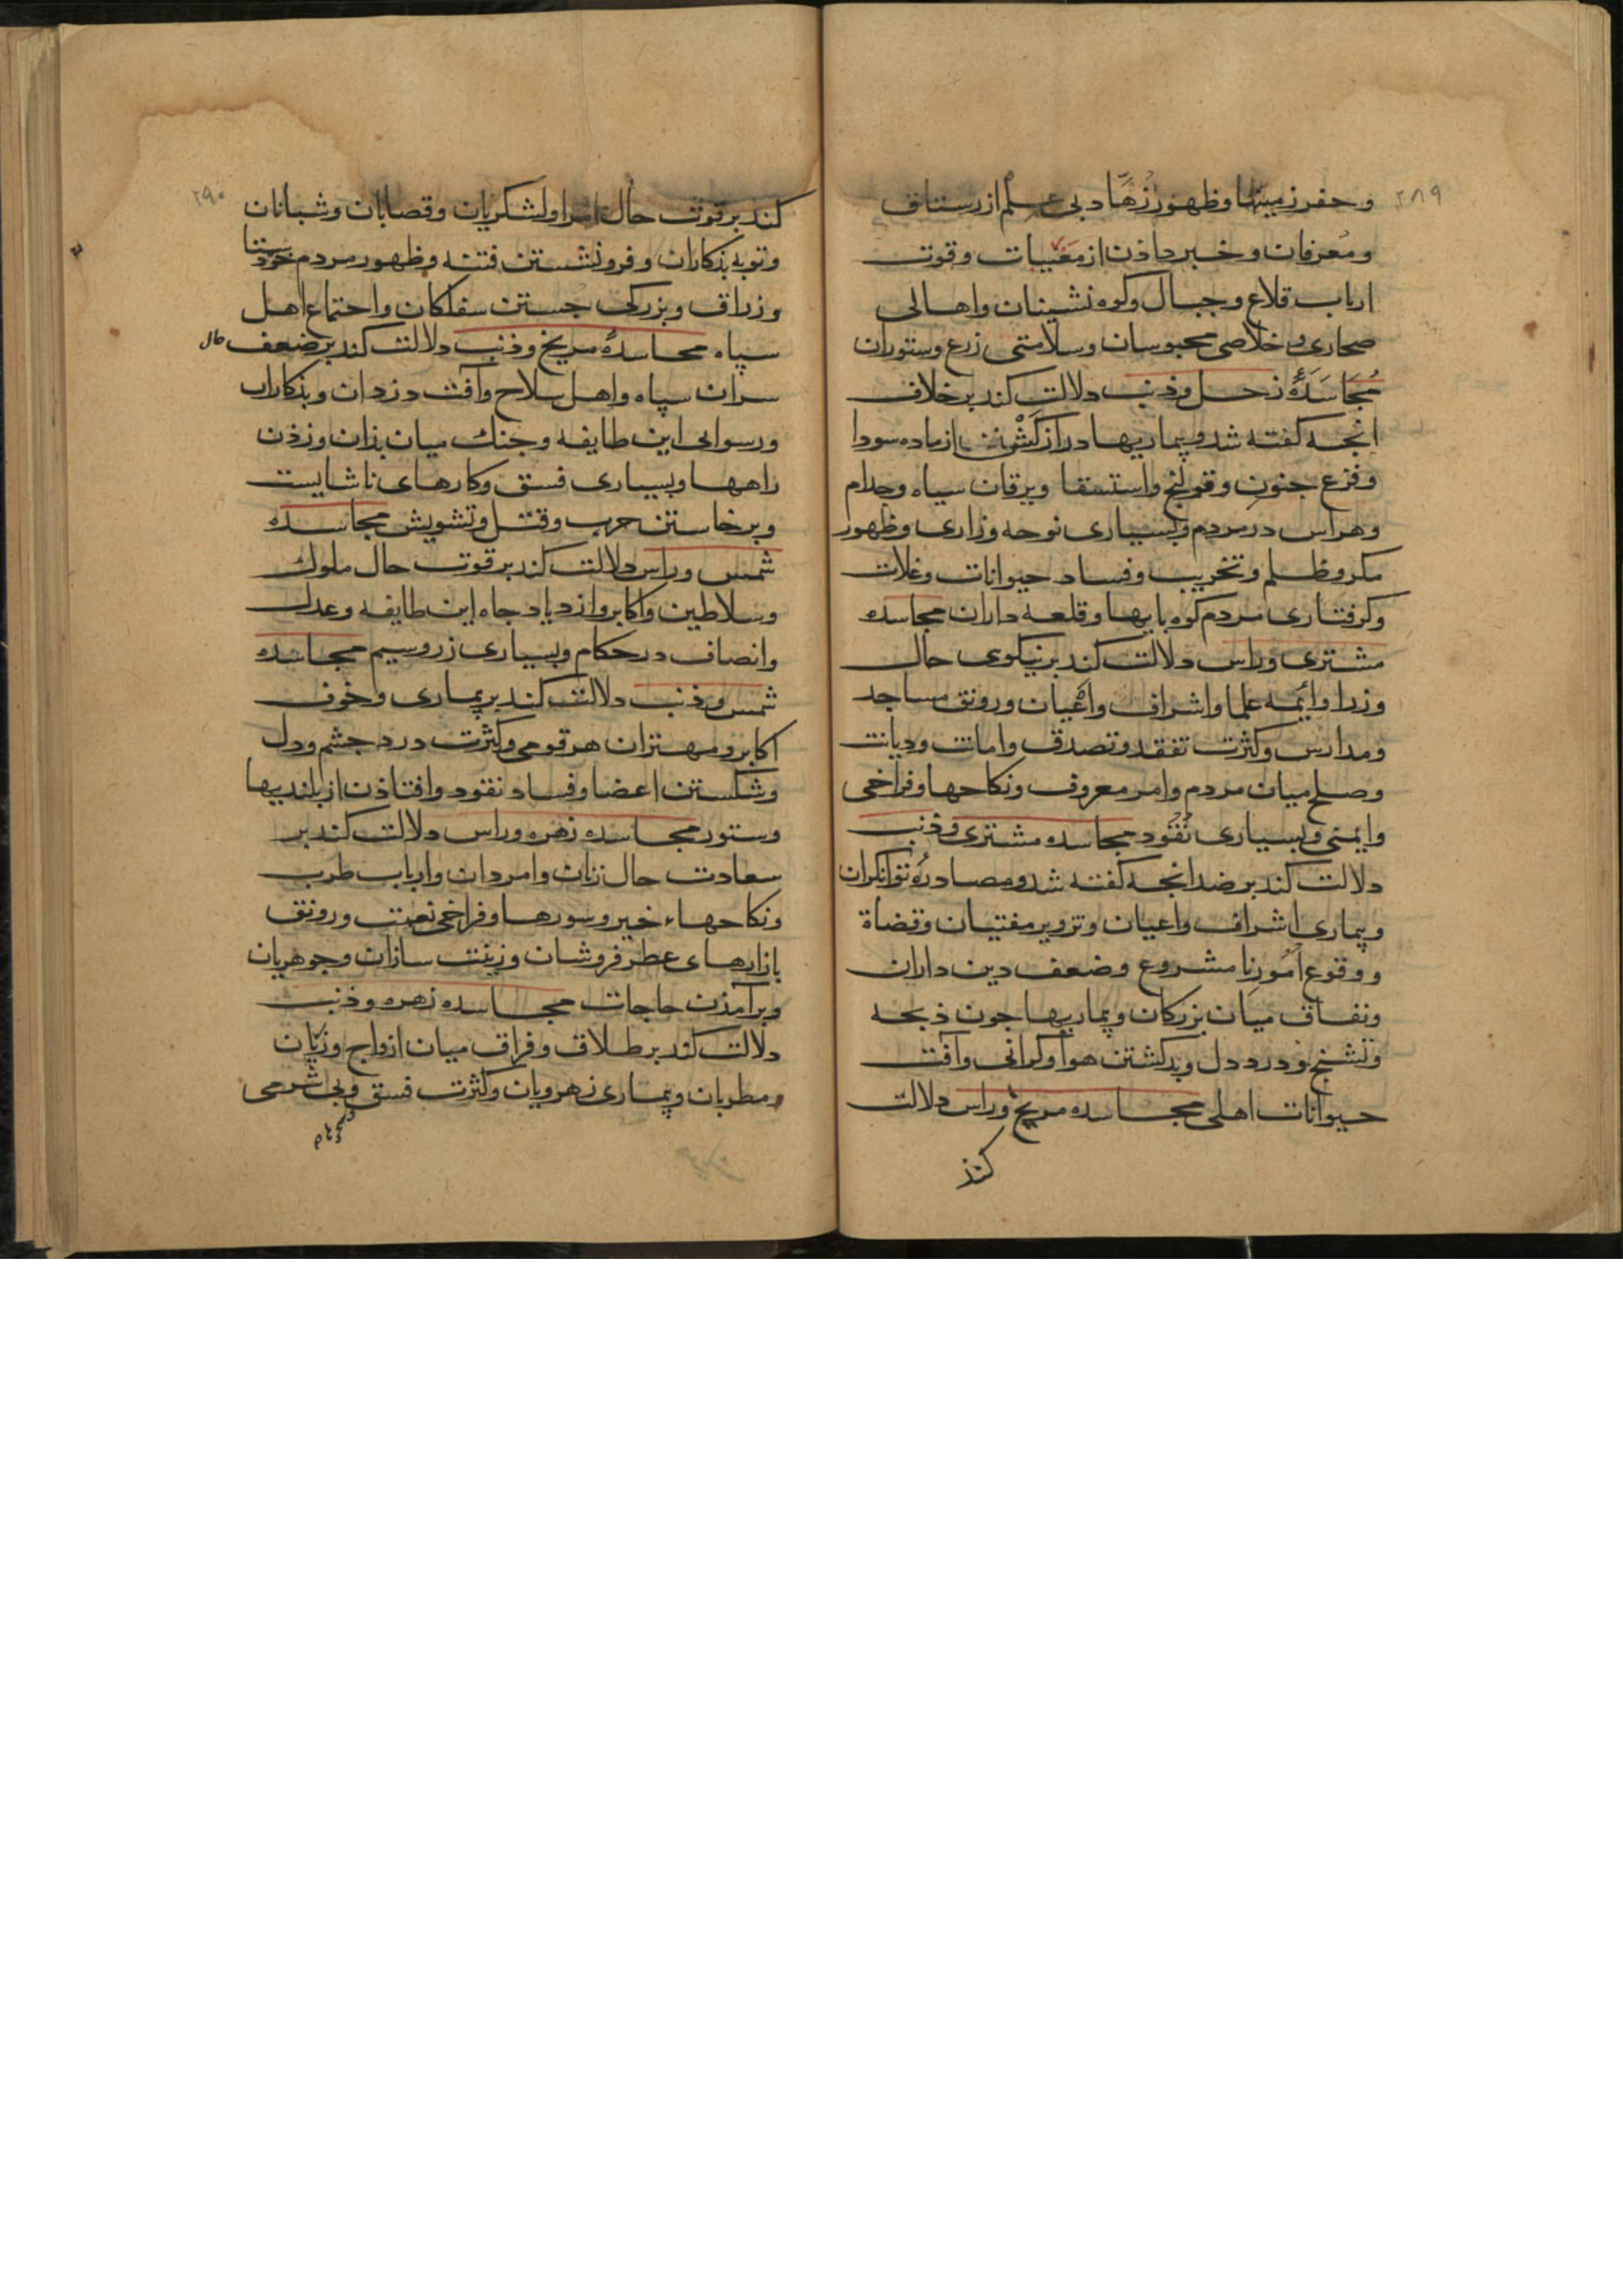 ۲۸۹
و حفر زمینها و ظهور زرها و بی علم از رستاق
و معرفان و خبر داذن از مغیبات و قوت
ارباب قلاع و جبال و کوه نشینان و اهالی
صحاری و خلاصی محبوسان و سلامتی زرع و ستوران
مُجَاسَدَهٔ زحل و ذنب دلالت کند بر خلاف
انجه کفته شد و بیماریها دراز کَشْتن از ماده سودا
و فزع جنون و قولنج و استسقا و یرقان سیاه و جذام
و هراس در مردم و بسیاری نوحه و زاری و ظهور
مکر و ظلم و تخریب و فساد حیوانات و غلات
و کرفتاری مردم کوه پایها و قلعه داران مجاسده
مشتری و راس دلالت کند بر نیکوی حال
وزرا و ایمه علما و اشراف و اعیان و رونق مساجد
و مدارس و کثرت تفقد و تصدق و امانت و دیانت
و صلح میان مردم و امر معروف و نکاحها و فراخی
و ایمنی و بسیاری نُقُود مجاسده مشتری و ذنب
دلالت کند بر ضد انجه کفته شد و مصادرهٔ توانکران
و بیماری اشراف و اعیان و تزویر مفتیان و قضاة
و وقوع اُمُور نا مشروع و ضعف دین داران
و نفاق میان بزرکان و بیماریها جون ذبحه
و تشنج و درد دل و بد کشتن هوا و کرانی و آفت
حیوانات اهلی مجاسده مریخ و راس دلالت
کند
۲۹۰
کند بر قوت حال امرا و لشکریان و قصابان و شبانان
و توبه بذکاران و فرو نشستن فتنه و ظهور مردم خود ستا
و زراق و بزرکی جستن سفلکان و اجتماع اهل
سپاه مجاسدهٔ مریخ و ذنب دلالت کند بر ضعف حال
سران سپاه و اهل سلاح و آفت دزدان و بذکاران
و رسوایی این طایفه و جنك میان بذان و زذن
راهها و بسیاری فسق و کارهای ناشایست
و برخاستن حرب و قتل و تشویش مجاسده
شمس و راس دلالت کند بر قوت حال ملوك
و سلاطین و اکابر و ازدیاد جاه این طایفه و عدل
و انصاف در حکام و بسیاری زر و سیم مجاسده
شمس و ذنب دلالت کند بر بیماری و خوف
اکابر و مهتران هر قومی و کثرت درد جشم و دل
و شکستن اعضا و فساد نقود و افتاذن از بلندیها
و ستور مجاسده زهره و راس دلالت کند بر
سعادت حال زنان و امردان و ارباب طرب
و نکاحهاء خیر و سورها و فراخی نعمت و رونق
بازارهای عطر فروشان و زینت سازان و جوهریان
و برآمذن حاجات مجاسده زهره و ذنب
دلالت کند بر طلاق و فراق میان ازواج و زیان
مطربان و بیماری زهرویان و کثرت فسق و بی شرمی